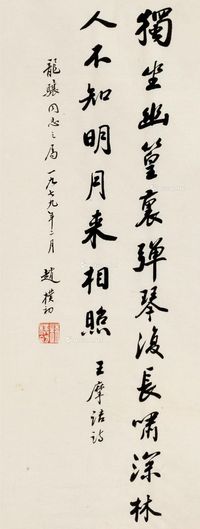 獨坐幽篁裏弹琴復長嘯深林
人不知明月来相照
王摩詰詩
龍驤同志之属 一九七九年二月
趙樸初